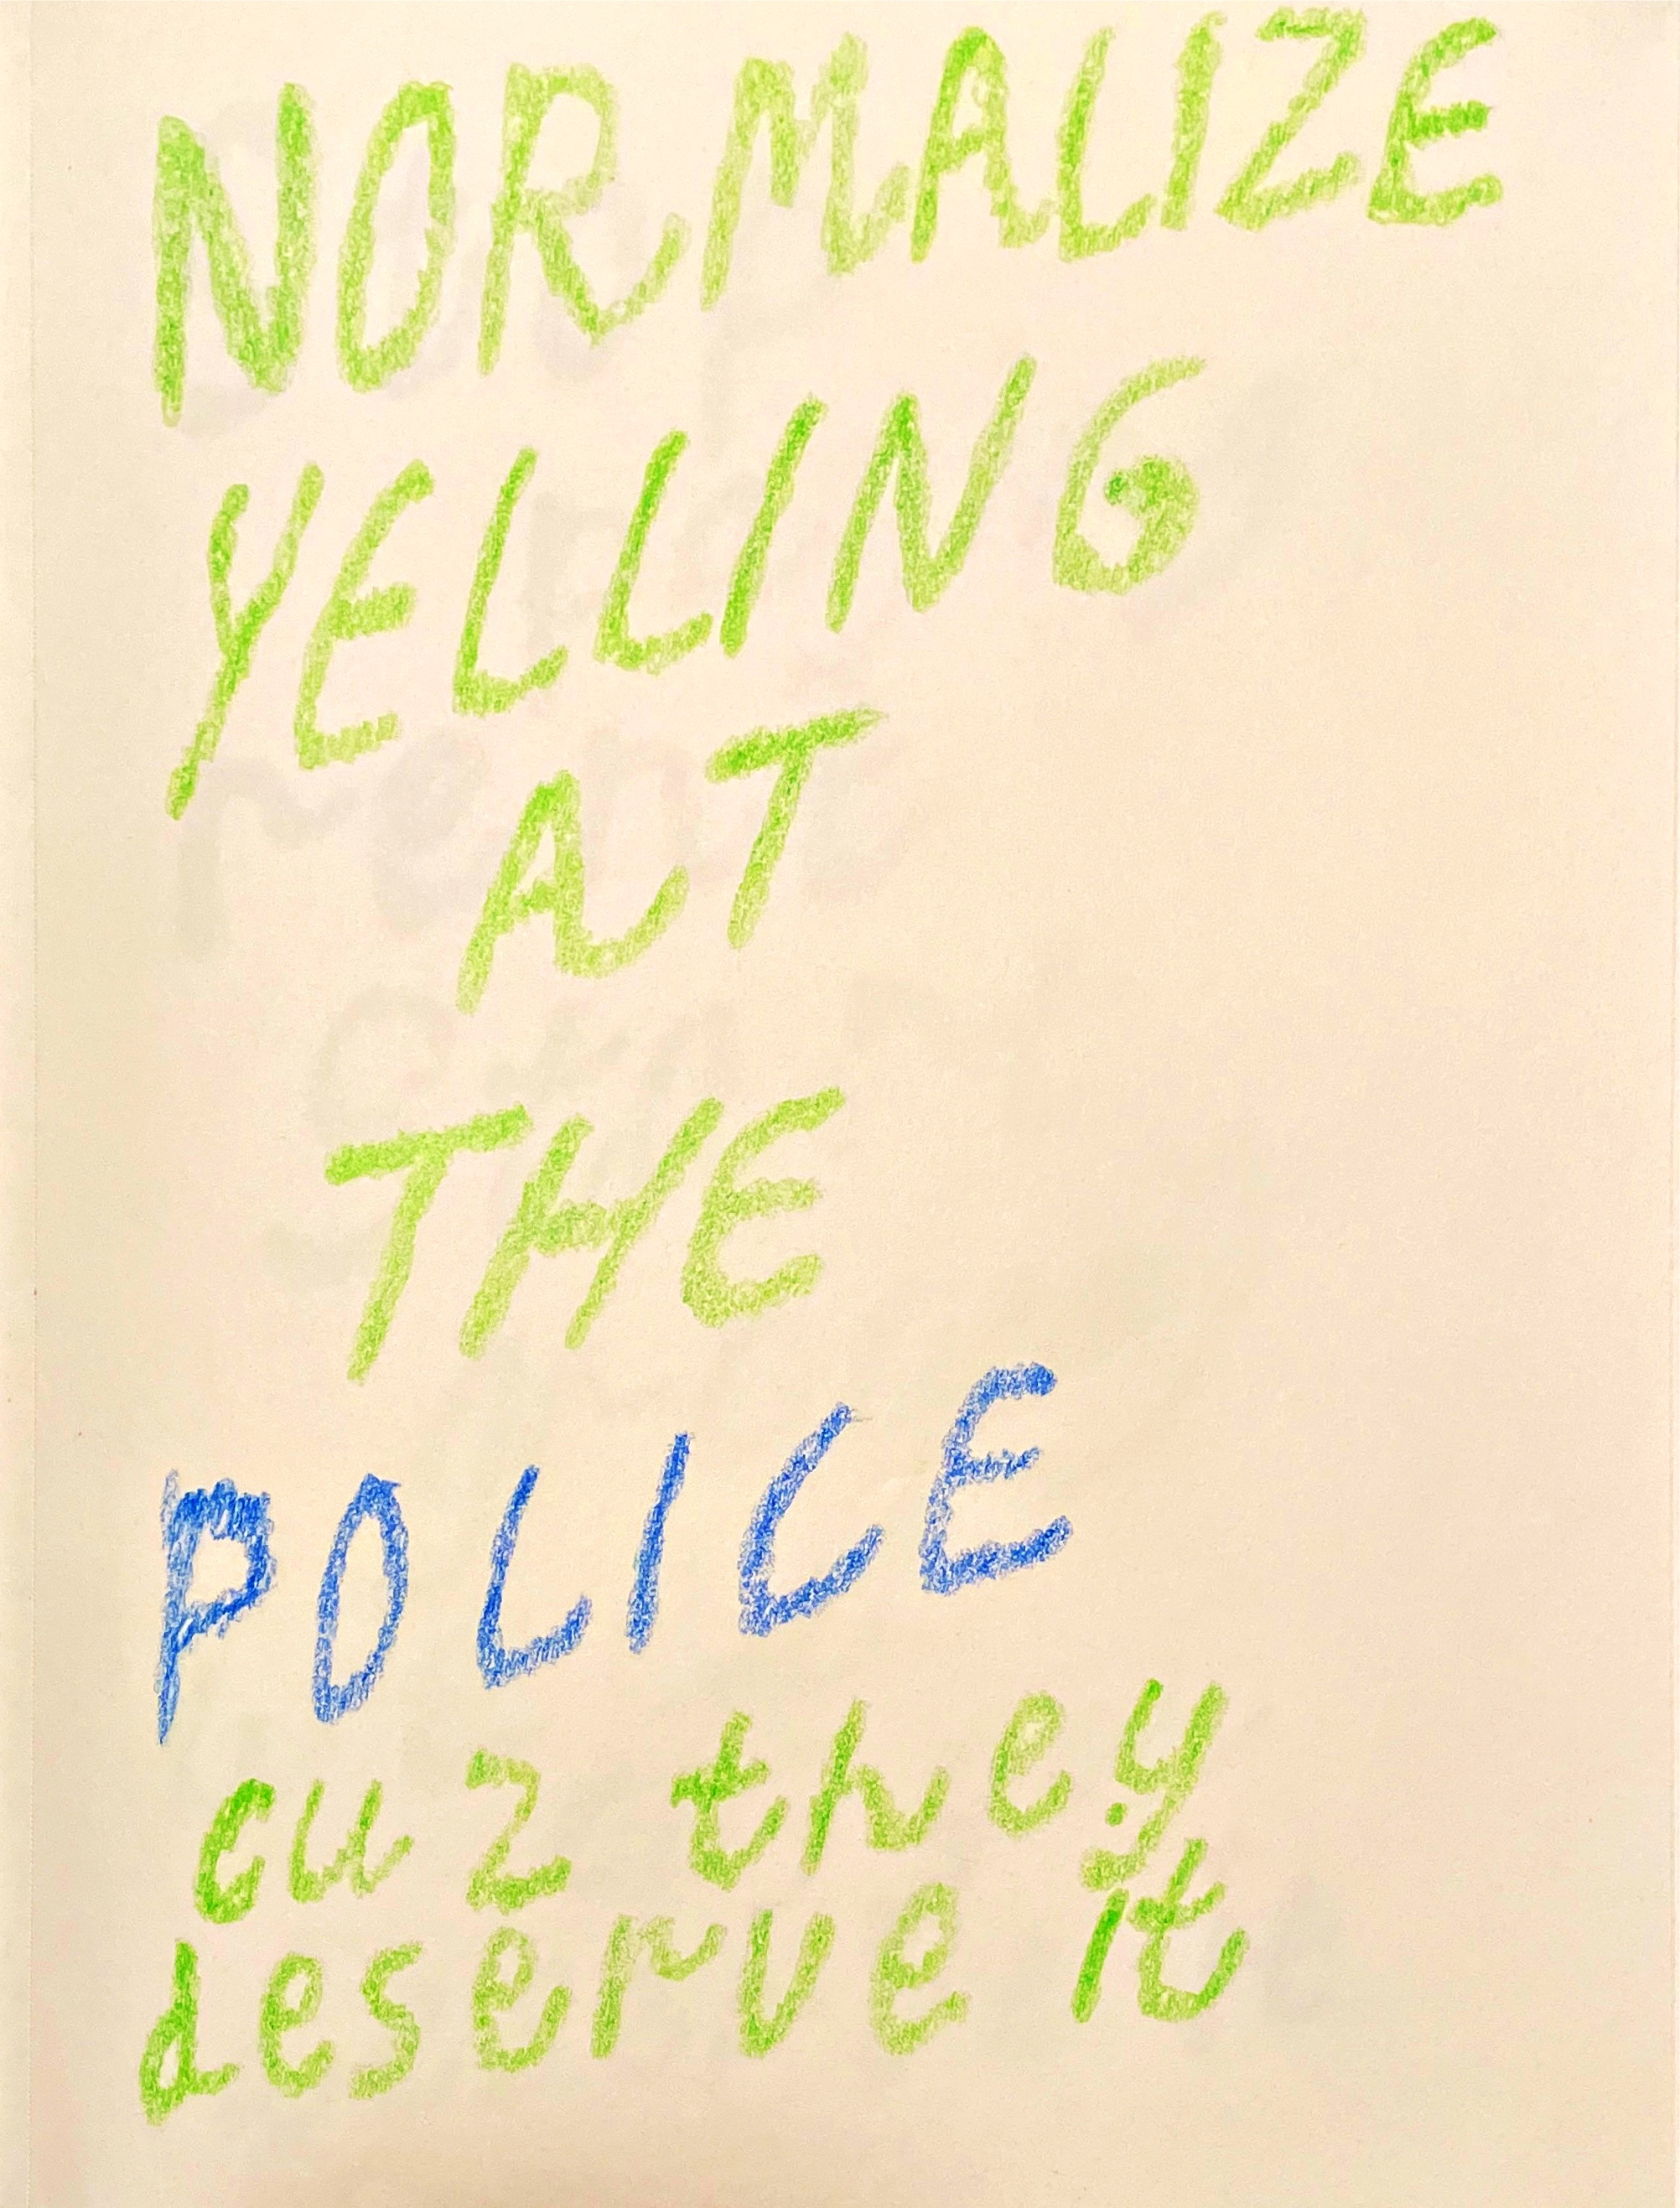 NORMALIZE
YELLING
AT
THE
POLICE
cuz they
deserve it